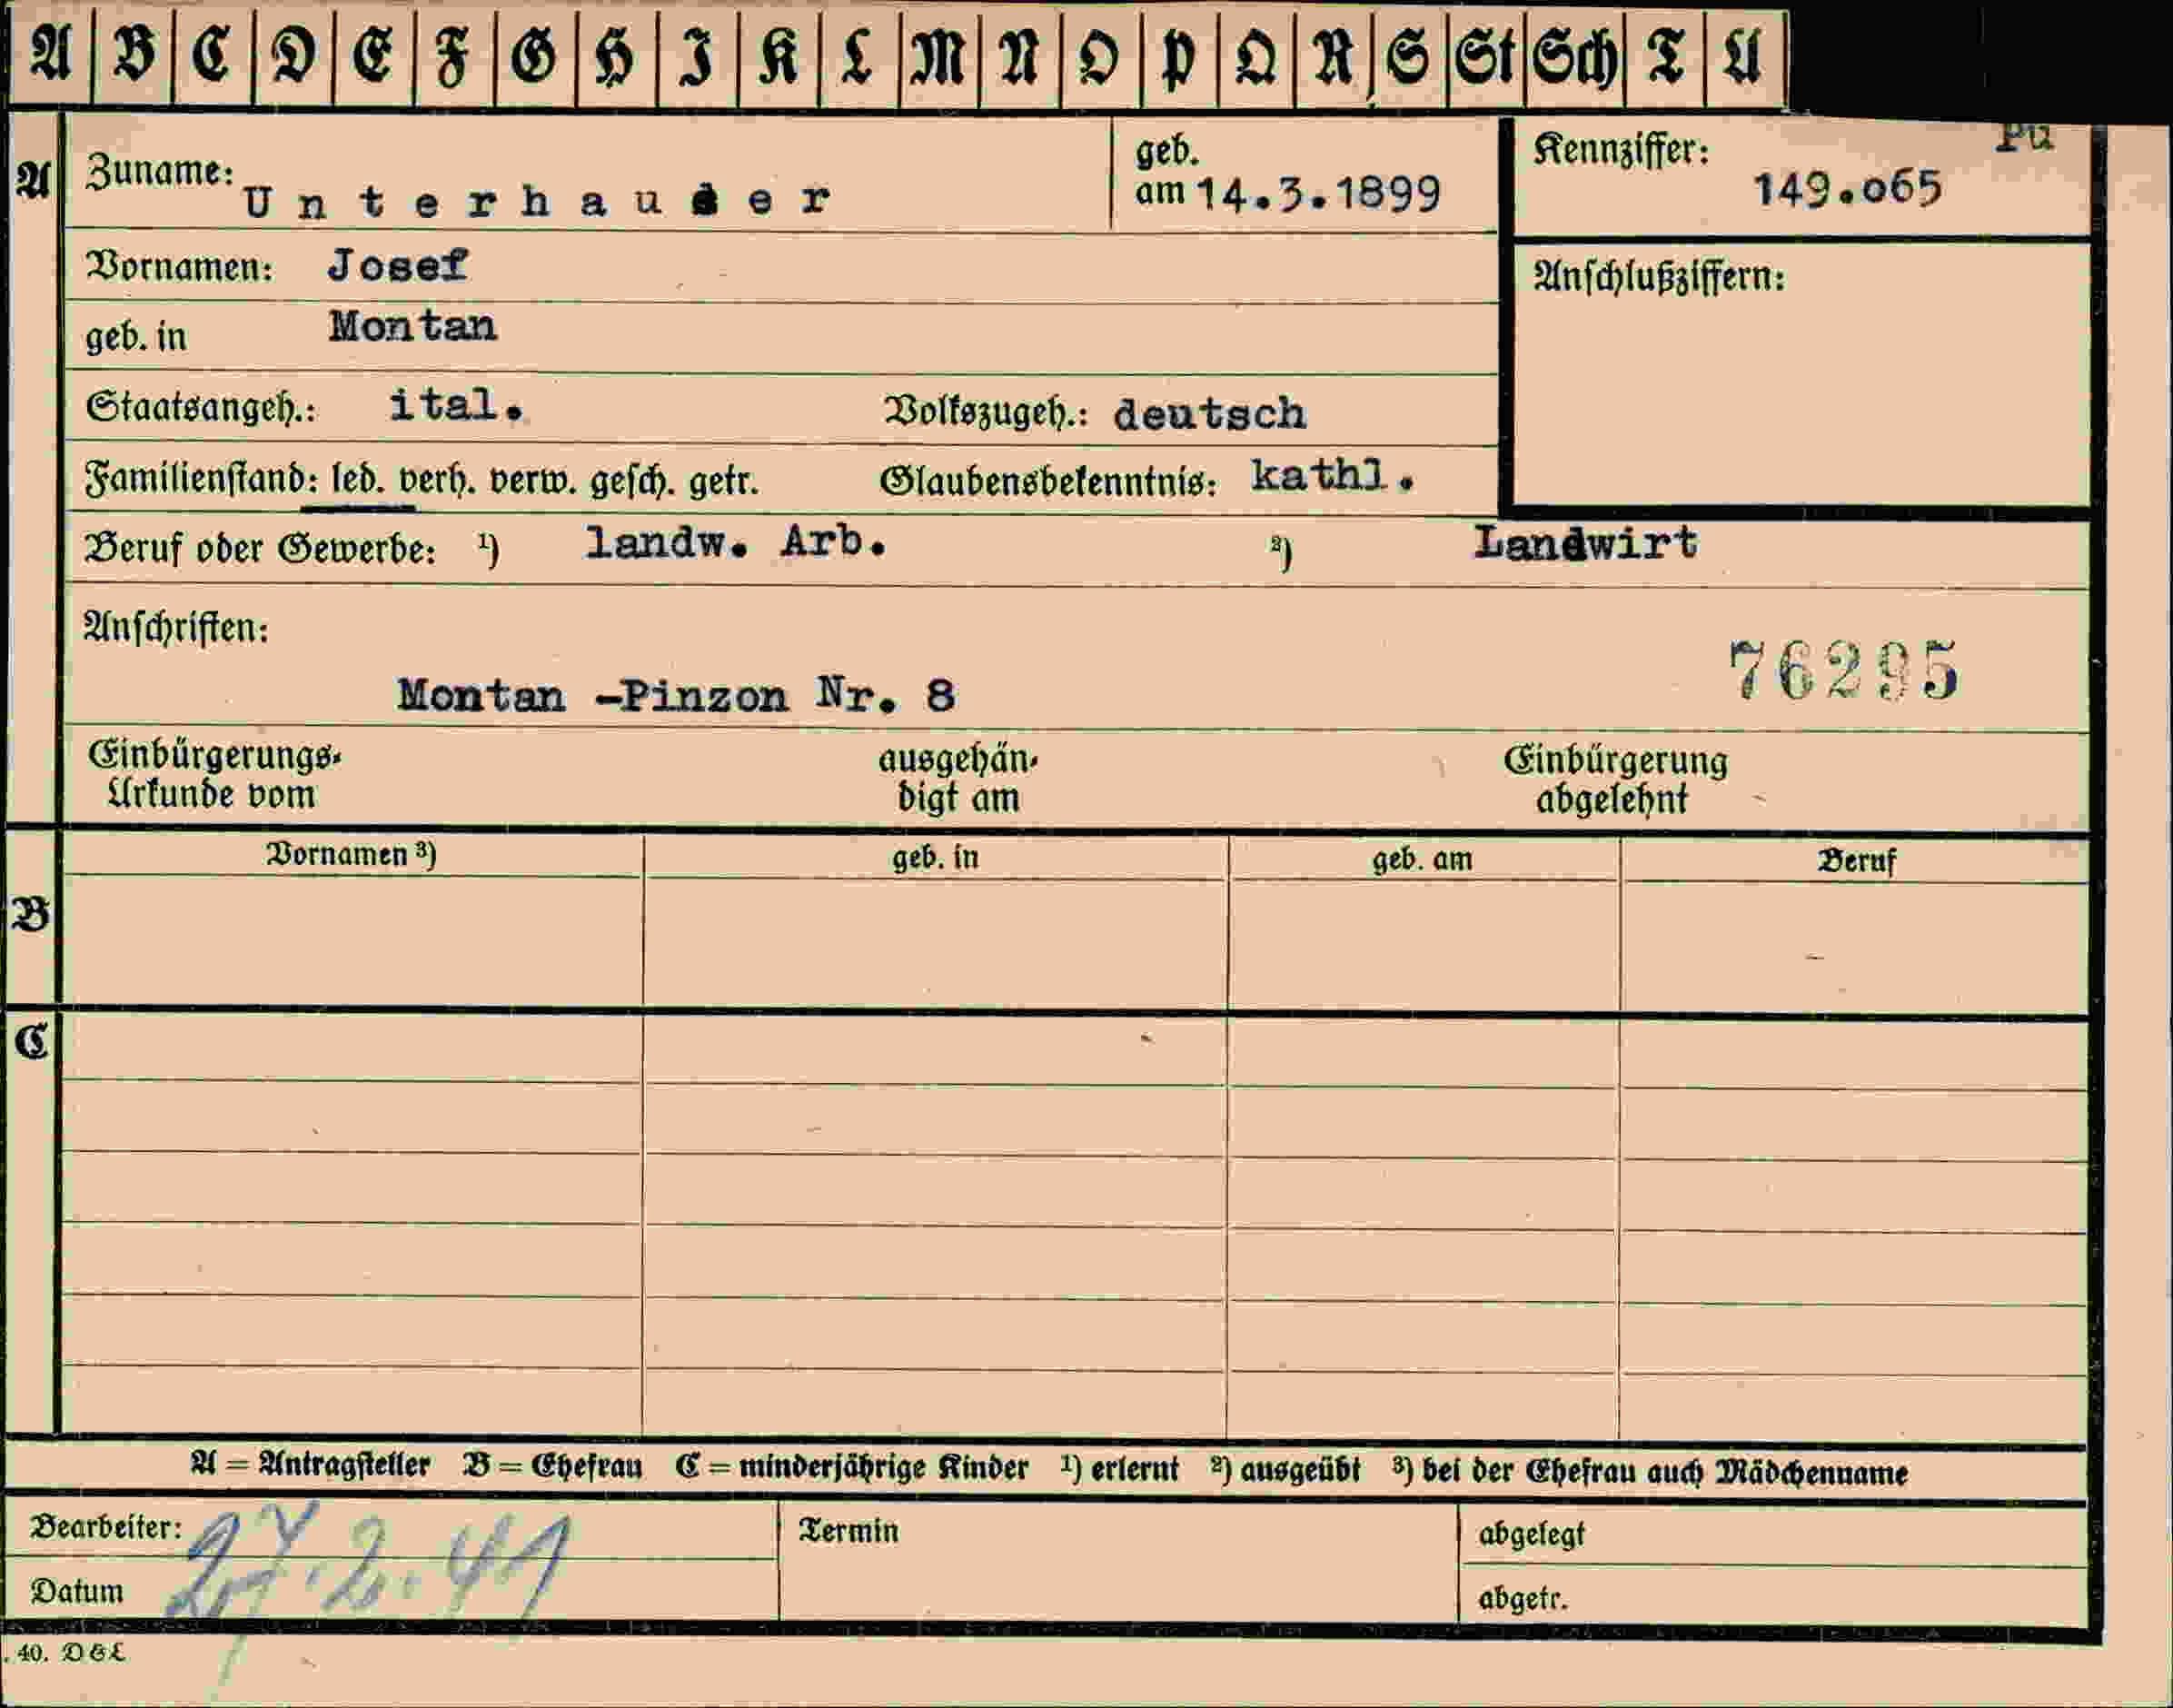 A B C D E F G H I K L M N O P Q R S St Sch T U
A Zuname: Unterhauser geb. am 14.3.1899 Kennziffer: 149.o65 Pu
Vornamen: Josef Anschlußziffern:
geb. in Montan
Staatsangeh.: ital. Volkszugeh.: deutsch
Familienstand: led. verh. verw. gesch. getr. Glaubensbekenntnis: kathl.
Beruf oder Gewerbe: ¹) landw. Arb. ²) Landwirt
Anschriften:
76295
Montan -Pinzon Nr. 8
Einbürgerungs- ausgehän- Einbürgerung
Urkunde vom digt am abgelehnt
Vornamen ³) geb. in geb. am Beruf
B
C
A = Antragsteller B = Ehefrau C = minderjährige Kinder ¹) erlernt ²) ausgeübt ³) bei der Ehefrau auch Mädchenname
Bearbeiter: 27.2.41 Termin abgelegt
Datum abgetr.
. 40. D&L